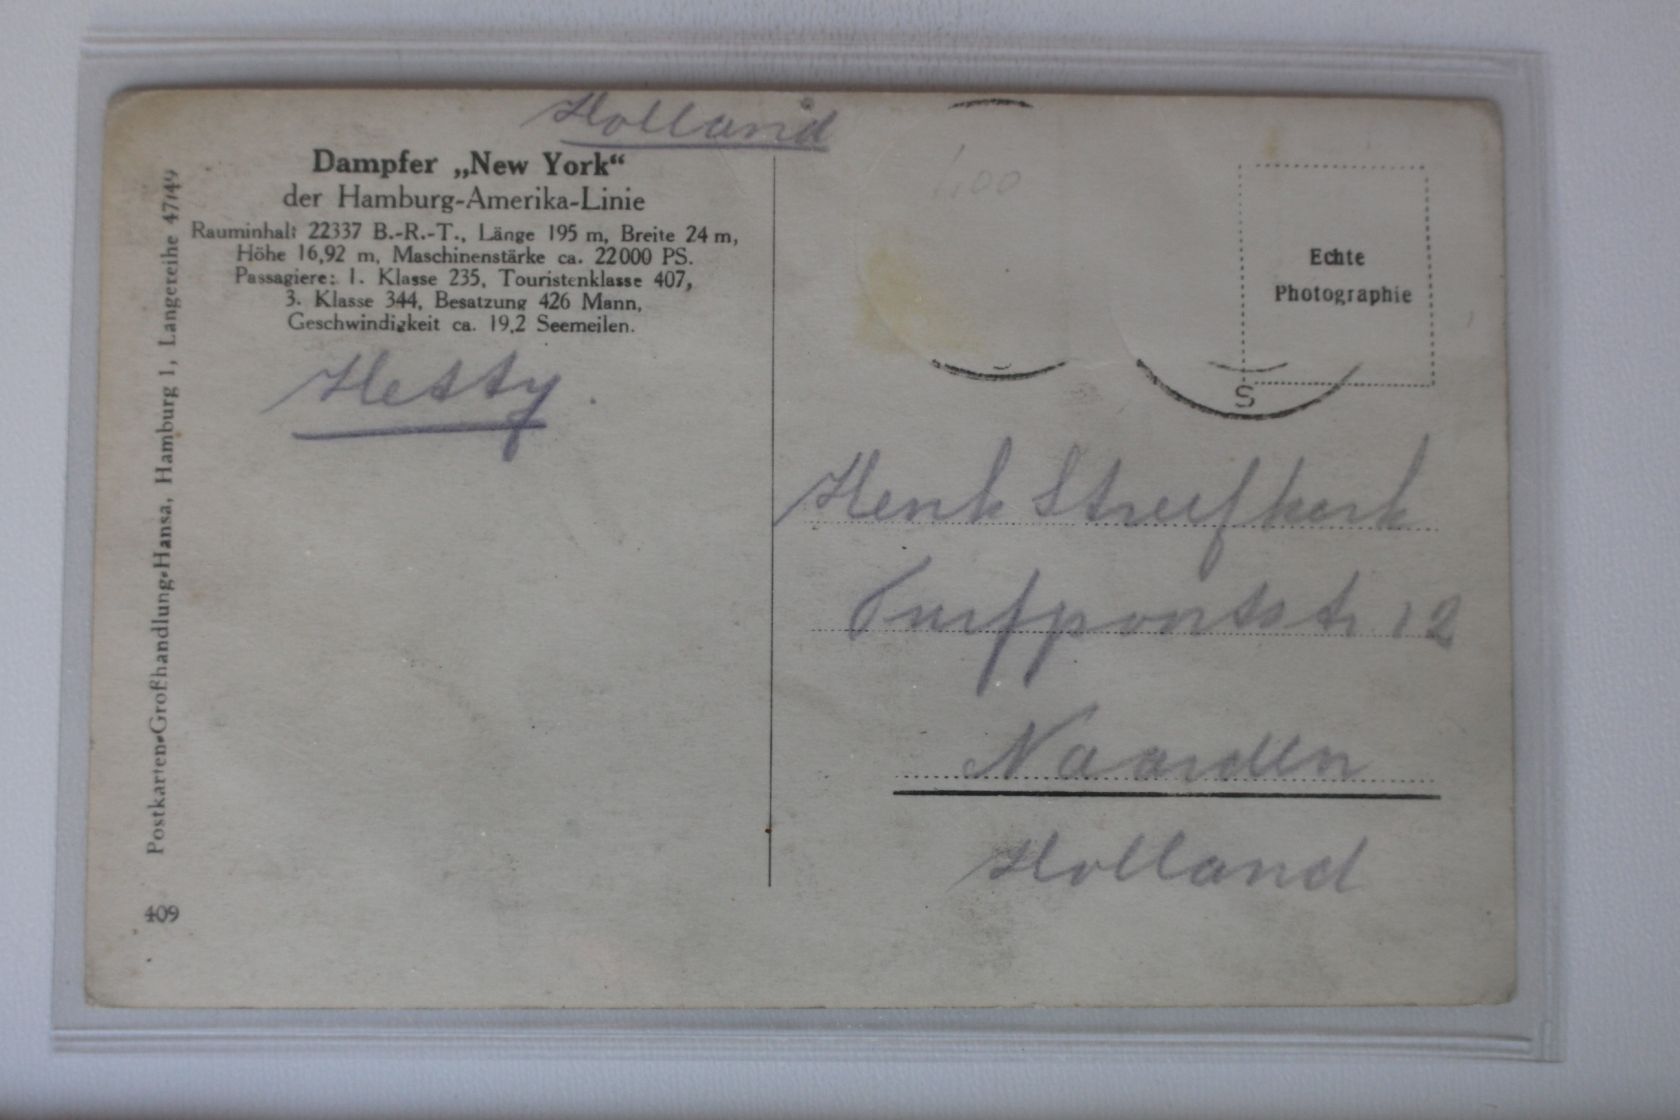 Holland
Dampfer „New York“
der Hamburg-Amerika-Linie
Rauminhalt 22337 B.-R.-T., Länge 195 m, Breite 24 m,
Höhe 16,92 m, Maschinenstärke ca. 22000 PS.
Passagiere: 1. Klasse 235, Touristenklasse 407,
3. Klasse 344, Besatzung 426 Mann,
Geschwindigkeit ca. 19,2 Seemeilen.
Hetty.
Postkarten-Großhandlung-Hansa, Hamburg 1, Langereihe 47/49
409
Echte
Photographie
S
Henk Streefkerk
Turfpoortstr 12
Naarden
Holland